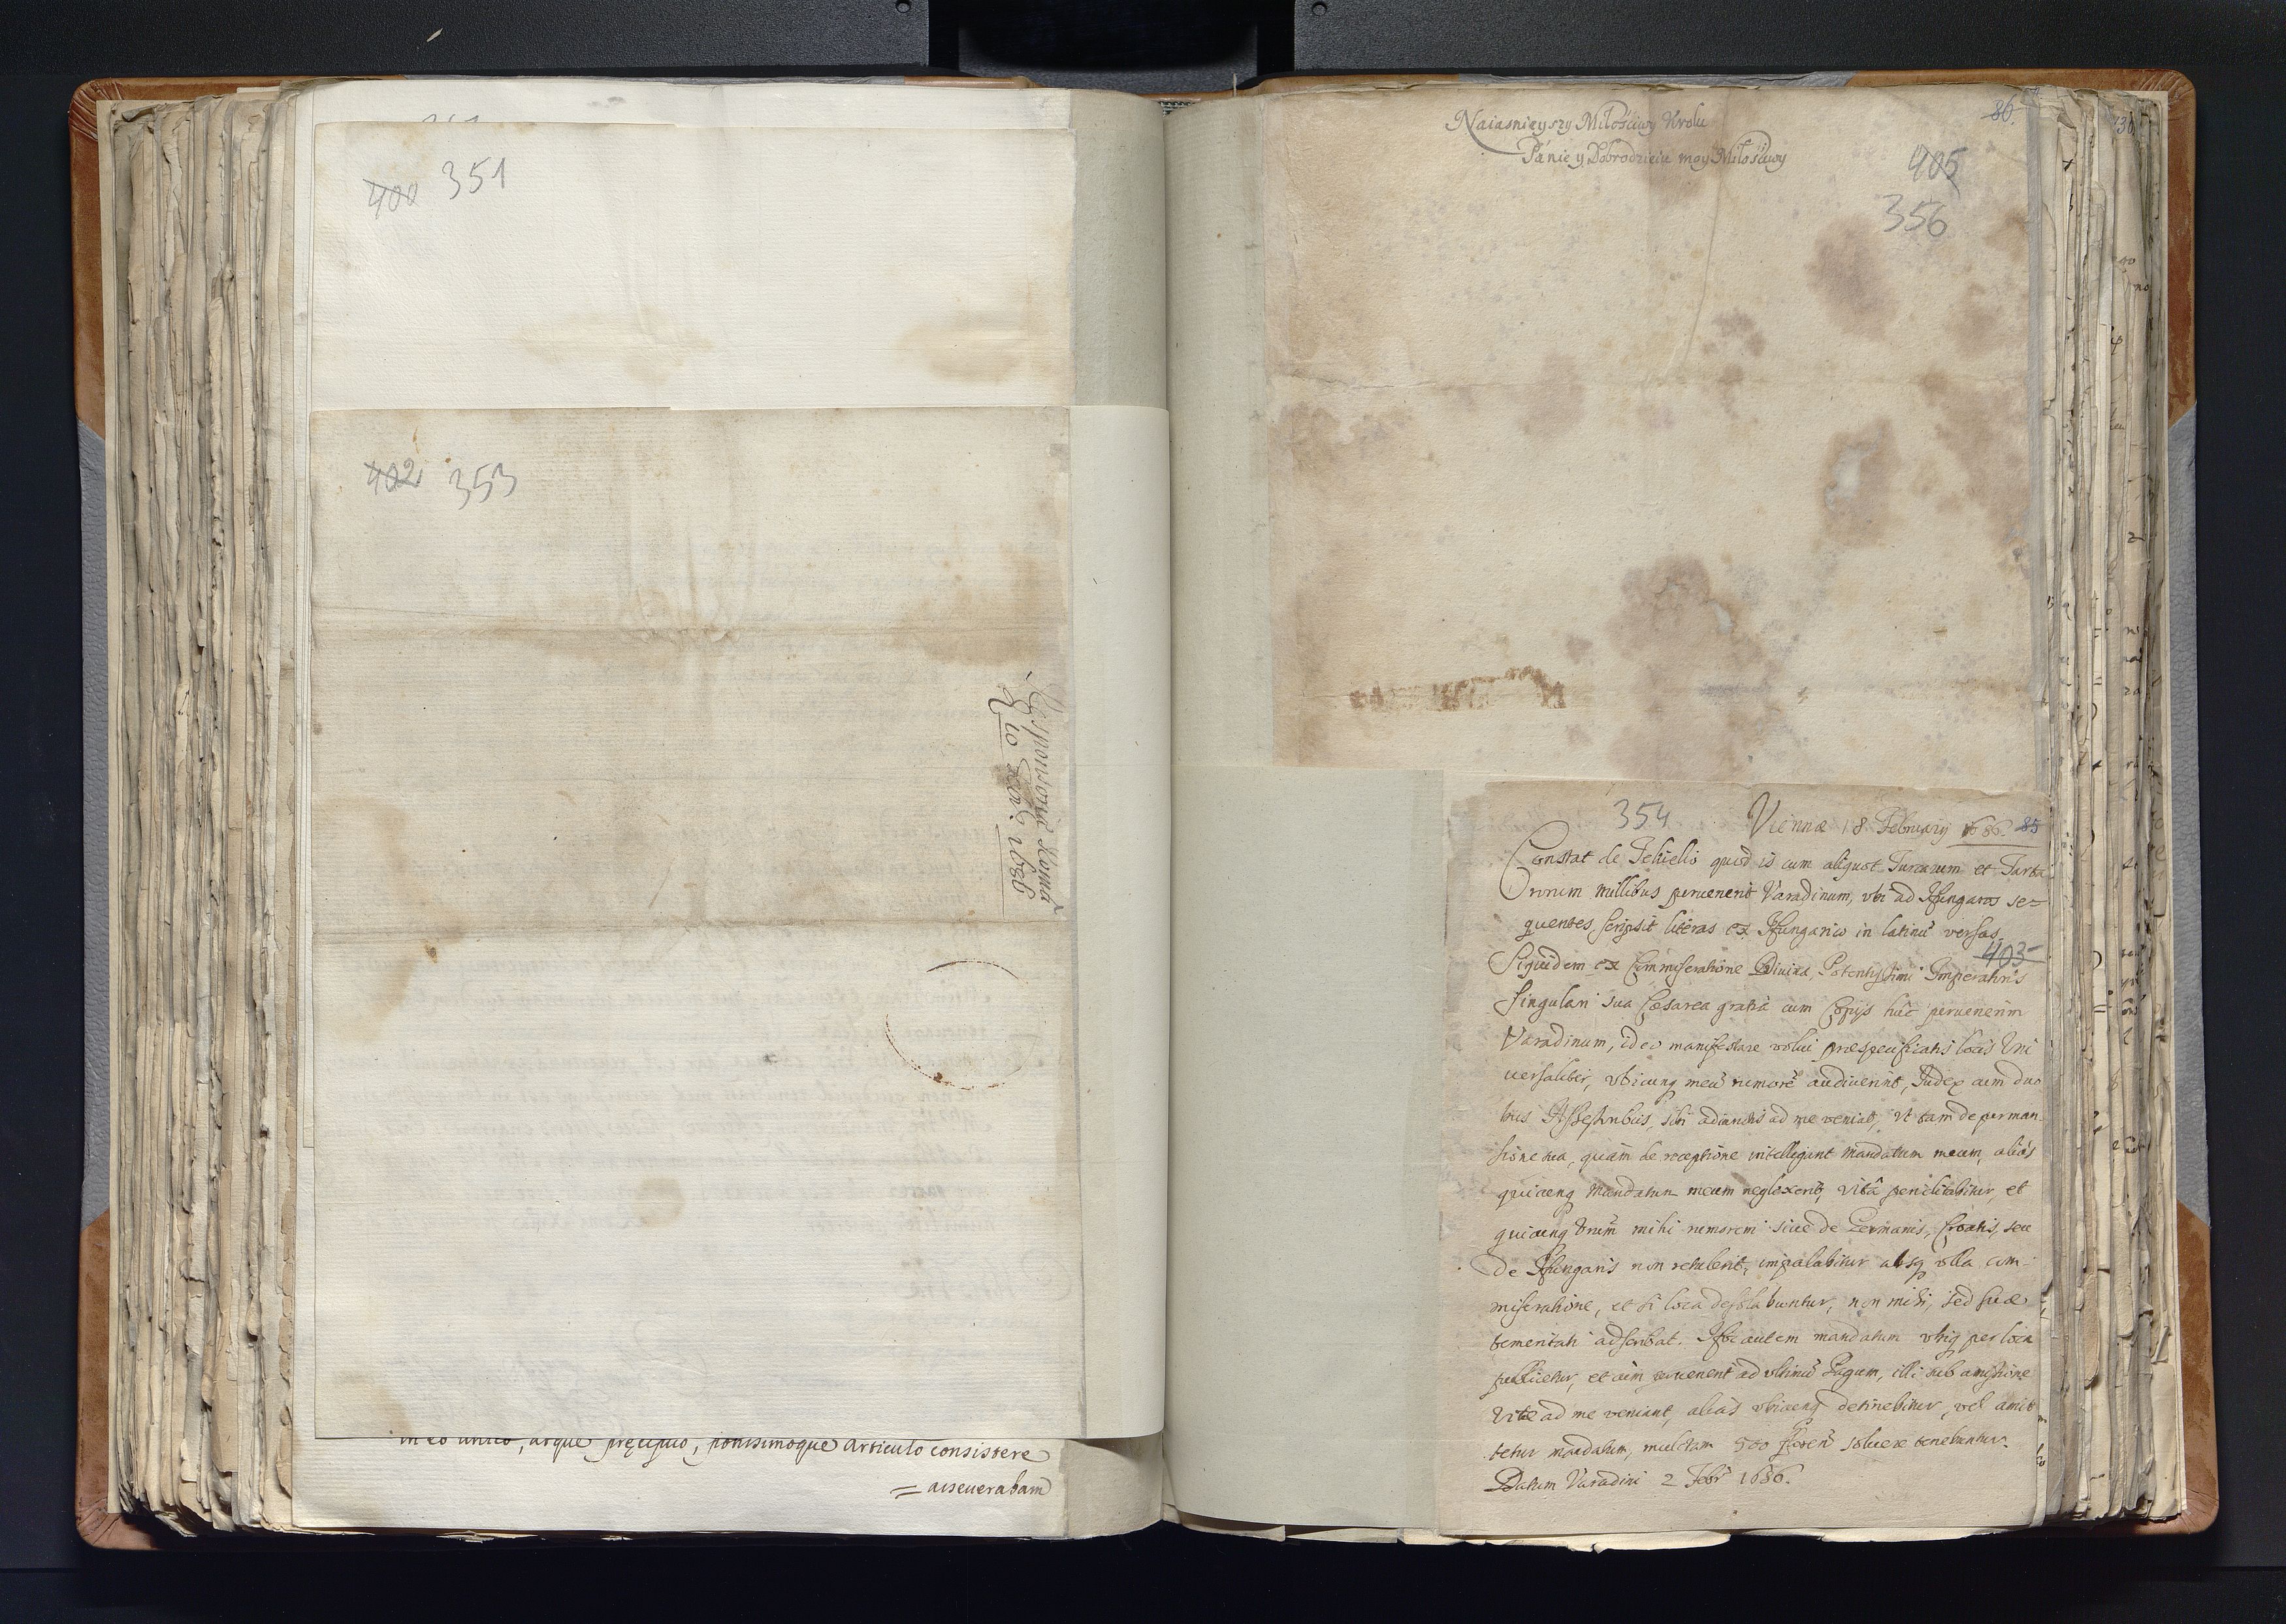 400 351
402 353
Responsoriae
10 1686
in eo unico, atque pręcipuo, potissimoque articulo consistere
= asseuerabam
86.
Naiasnieyszy Miłosciwy Krolu
Panie y Dobrodzieiu moy Miłosciwy
405
356
354
Viennæ 18 February 1686. 85
Constat de Tekielio quod is cum aliquot Turcarum et Tarta
rorum millibus peruenerit Varadinum, vbi ad Hungaros se=
quentes scripsit literas ex Hungarico in latinũ versas.
403
Siquidem ex Commiseratione Diuina Potentissimi Imperatoris
singulari sua Cæsarea gratia cum Copijs huc peruenerim
Varadinum, ideo manifestare volui præspecificatis locis Vni
uersaliter, vbicunq meũ rumorẽ audiuerint, Judex cum duo
bus Assessoribus, sibi adiunctis ad me veniat, vt tam de perman
sione sua, quam de receptione intelligant mandatum meum, aliàs
quicunq mandatum meum neglexerit, vitâ periclitabitur, et
quicunq mihi rumorem siue de Germanis, Croatis, seu
de Hungaris non retulerit, impalabitur absq vlla com-
miseratione, et si loca desolabuntur, non mihi, sed suæ
temeritati adscribat. Hoc autem mandatum vbiq per loca
publicetur, et cum peruenerit ad vltimũ Pagum, illi sub amissione
vitæ ad me veniant, aliàs vbicunq detinebitur, vel amit
tetur mandatum, mulctam 500 floren soluere tenebuntur.
Datum Varadini 2 Febr 1686.